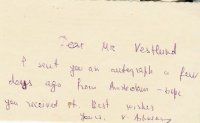 Dear Mr Vestlund
I sent you an autograph a few
days ago from Amsterdam - hope
you received it. Best wishes
Yours, V